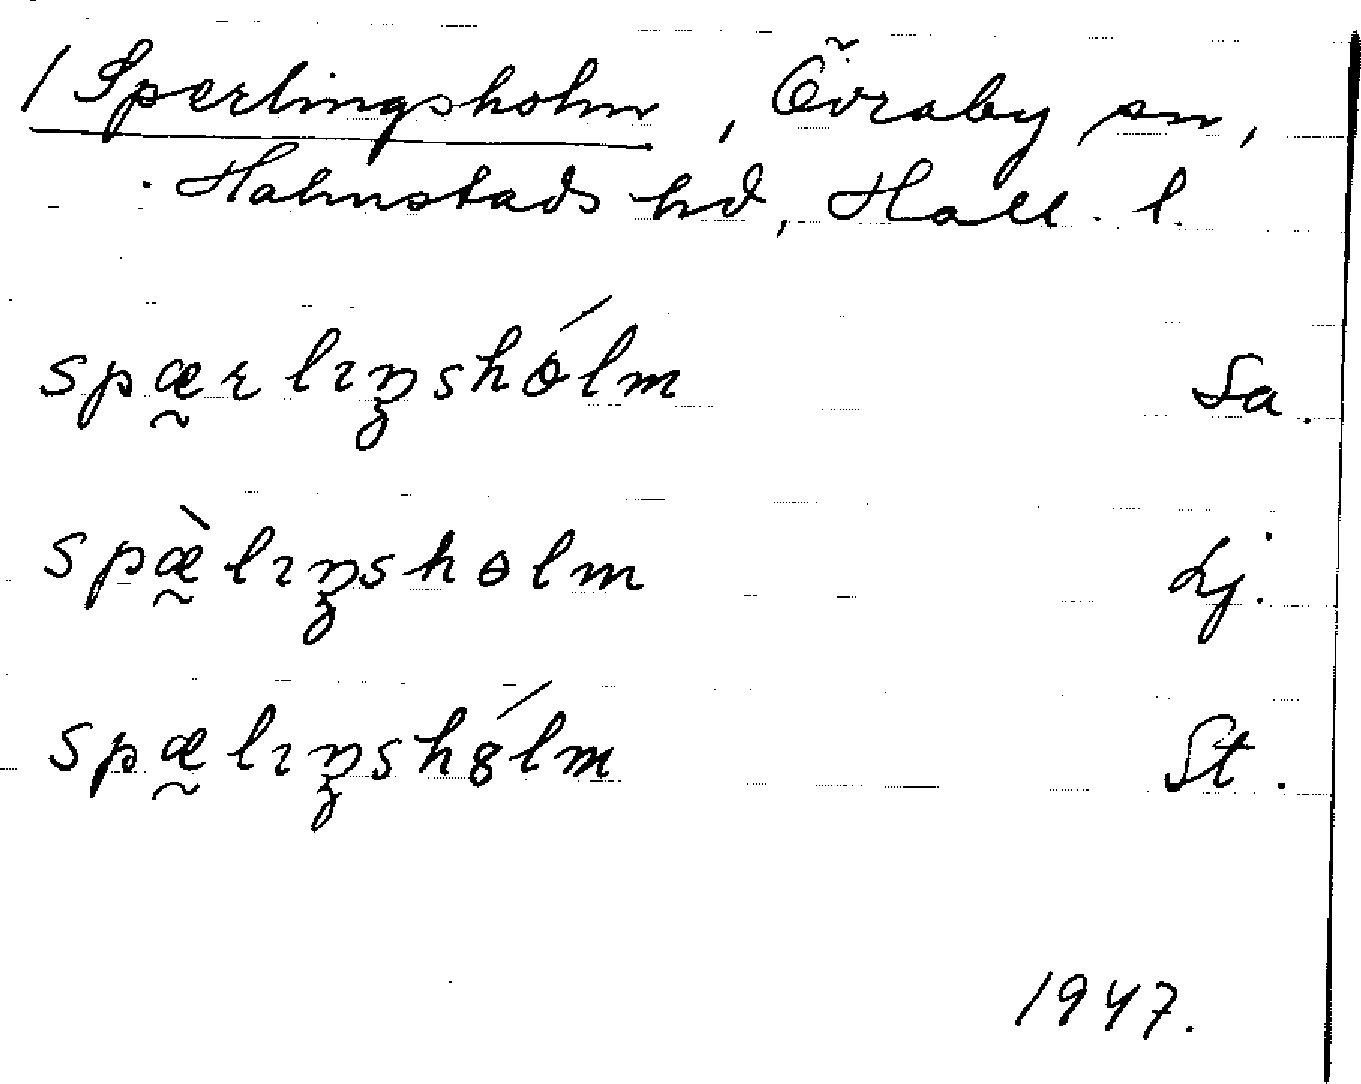 / Sperlingsholm, Övraby sn,
Halmstads hd, Hall. l.
spæ̰rlıŋshólm Sa.
spæ̰̀lıŋsholm Lj.
spæ̰lıŋshȣ́lm St.
1947.